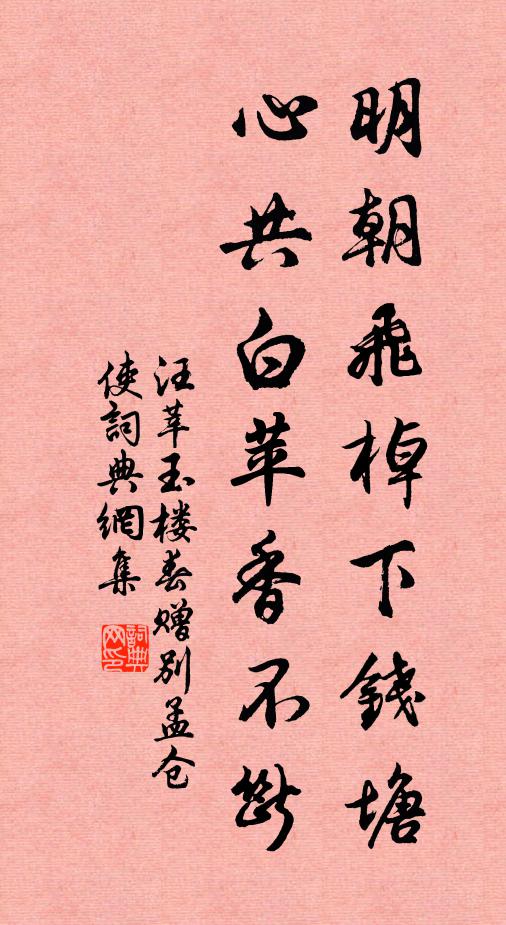 明朝飛棹下錢塘
心共白苹香不斷
汪莘玉楼春赠别孟仓
使詞典網集
詞典
网印